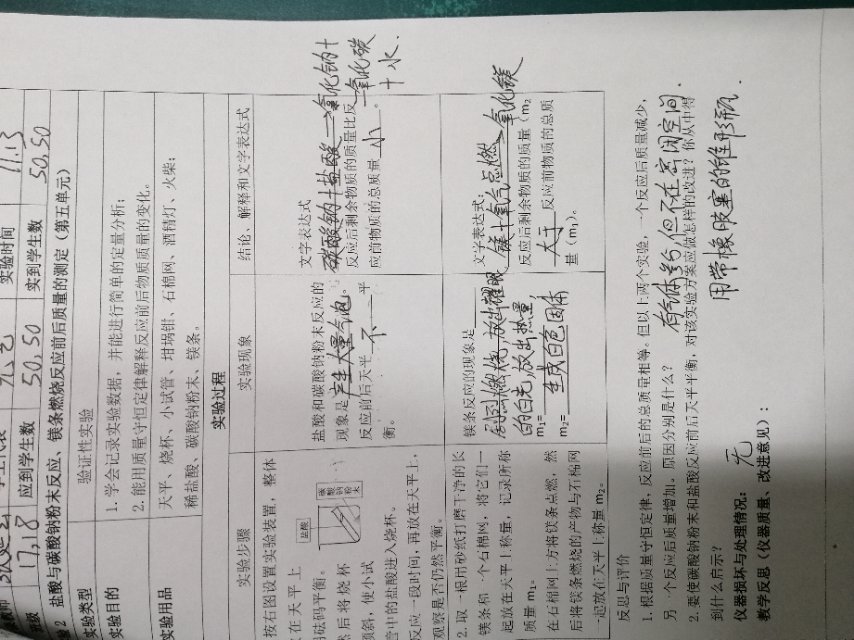 实验时间 11.13
17,18 应到学生数 50,50 实到学生数 50,50
盐酸与碳酸钠粉末反应、镁条燃烧反应前后质量的测定（第五单元）
实验类型 验证性实验
实验目的
1. 学会记录实验数据，并能进行简单的定量分析；
2. 能用质量守恒定律解释反应前后物质质量的变化。
实验用品
天平、烧杯、小试管、坩埚钳、石棉网、酒精灯、火柴；
稀盐酸、碳酸钠粉末、镁条。
实验过程
实验步骤 实验现象 结论、解释和文字表达式
按右图设置实验装置，整体
在天平上
用砝码平衡。
然后将烧杯
倾斜，使小试
管中的盐酸进入烧杯。
反应一段时间，再放在天平上，
观察是否仍然平衡。
盐酸
碳酸钠粉末
盐酸和碳酸钠粉末反应的
现象是产生大量气泡。
反应前后天平不平
衡。
文字表达式
碳酸钠+盐酸→氯化钠+二氧化碳+水.
反应后剩余物质的质量比反
应前物质的总质量小。
2. 取一根用砂纸打磨干净的长
镁条和一个石棉网，将它们一
起放在天平上称量，记录所称
质量m₁。
在石棉网上方将镁条点燃，然
后将镁条燃烧的产物与石棉网
一起放在天平上称量m₂。
镁条反应的现象是
剧烈燃烧,放出耀眼
的白光,放出热量,
生成白色固体
m₁=
m₂=
文字表达式：
镁+氧气点燃→氧化镁
反应后剩余物质的质量（m₂
大于反应前物质的总质
量（m₁）。
反思与评价
1. 根据质量守恒定律，反应前后的总质量相等。但以上两个实验，一个反应后质量减少，
另一个反应后质量增加。原因分别是什么？
有气体参与但不在密闭空间.
2. 要使碳酸钠粉末和盐酸反应前后天平平衡，对该实验方案应做怎样的改进？你从中得
到什么启示？
用带橡胶塞的锥形瓶.
仪器损坏与处理情况：无
教学反思（仪器质量、改进意见）：